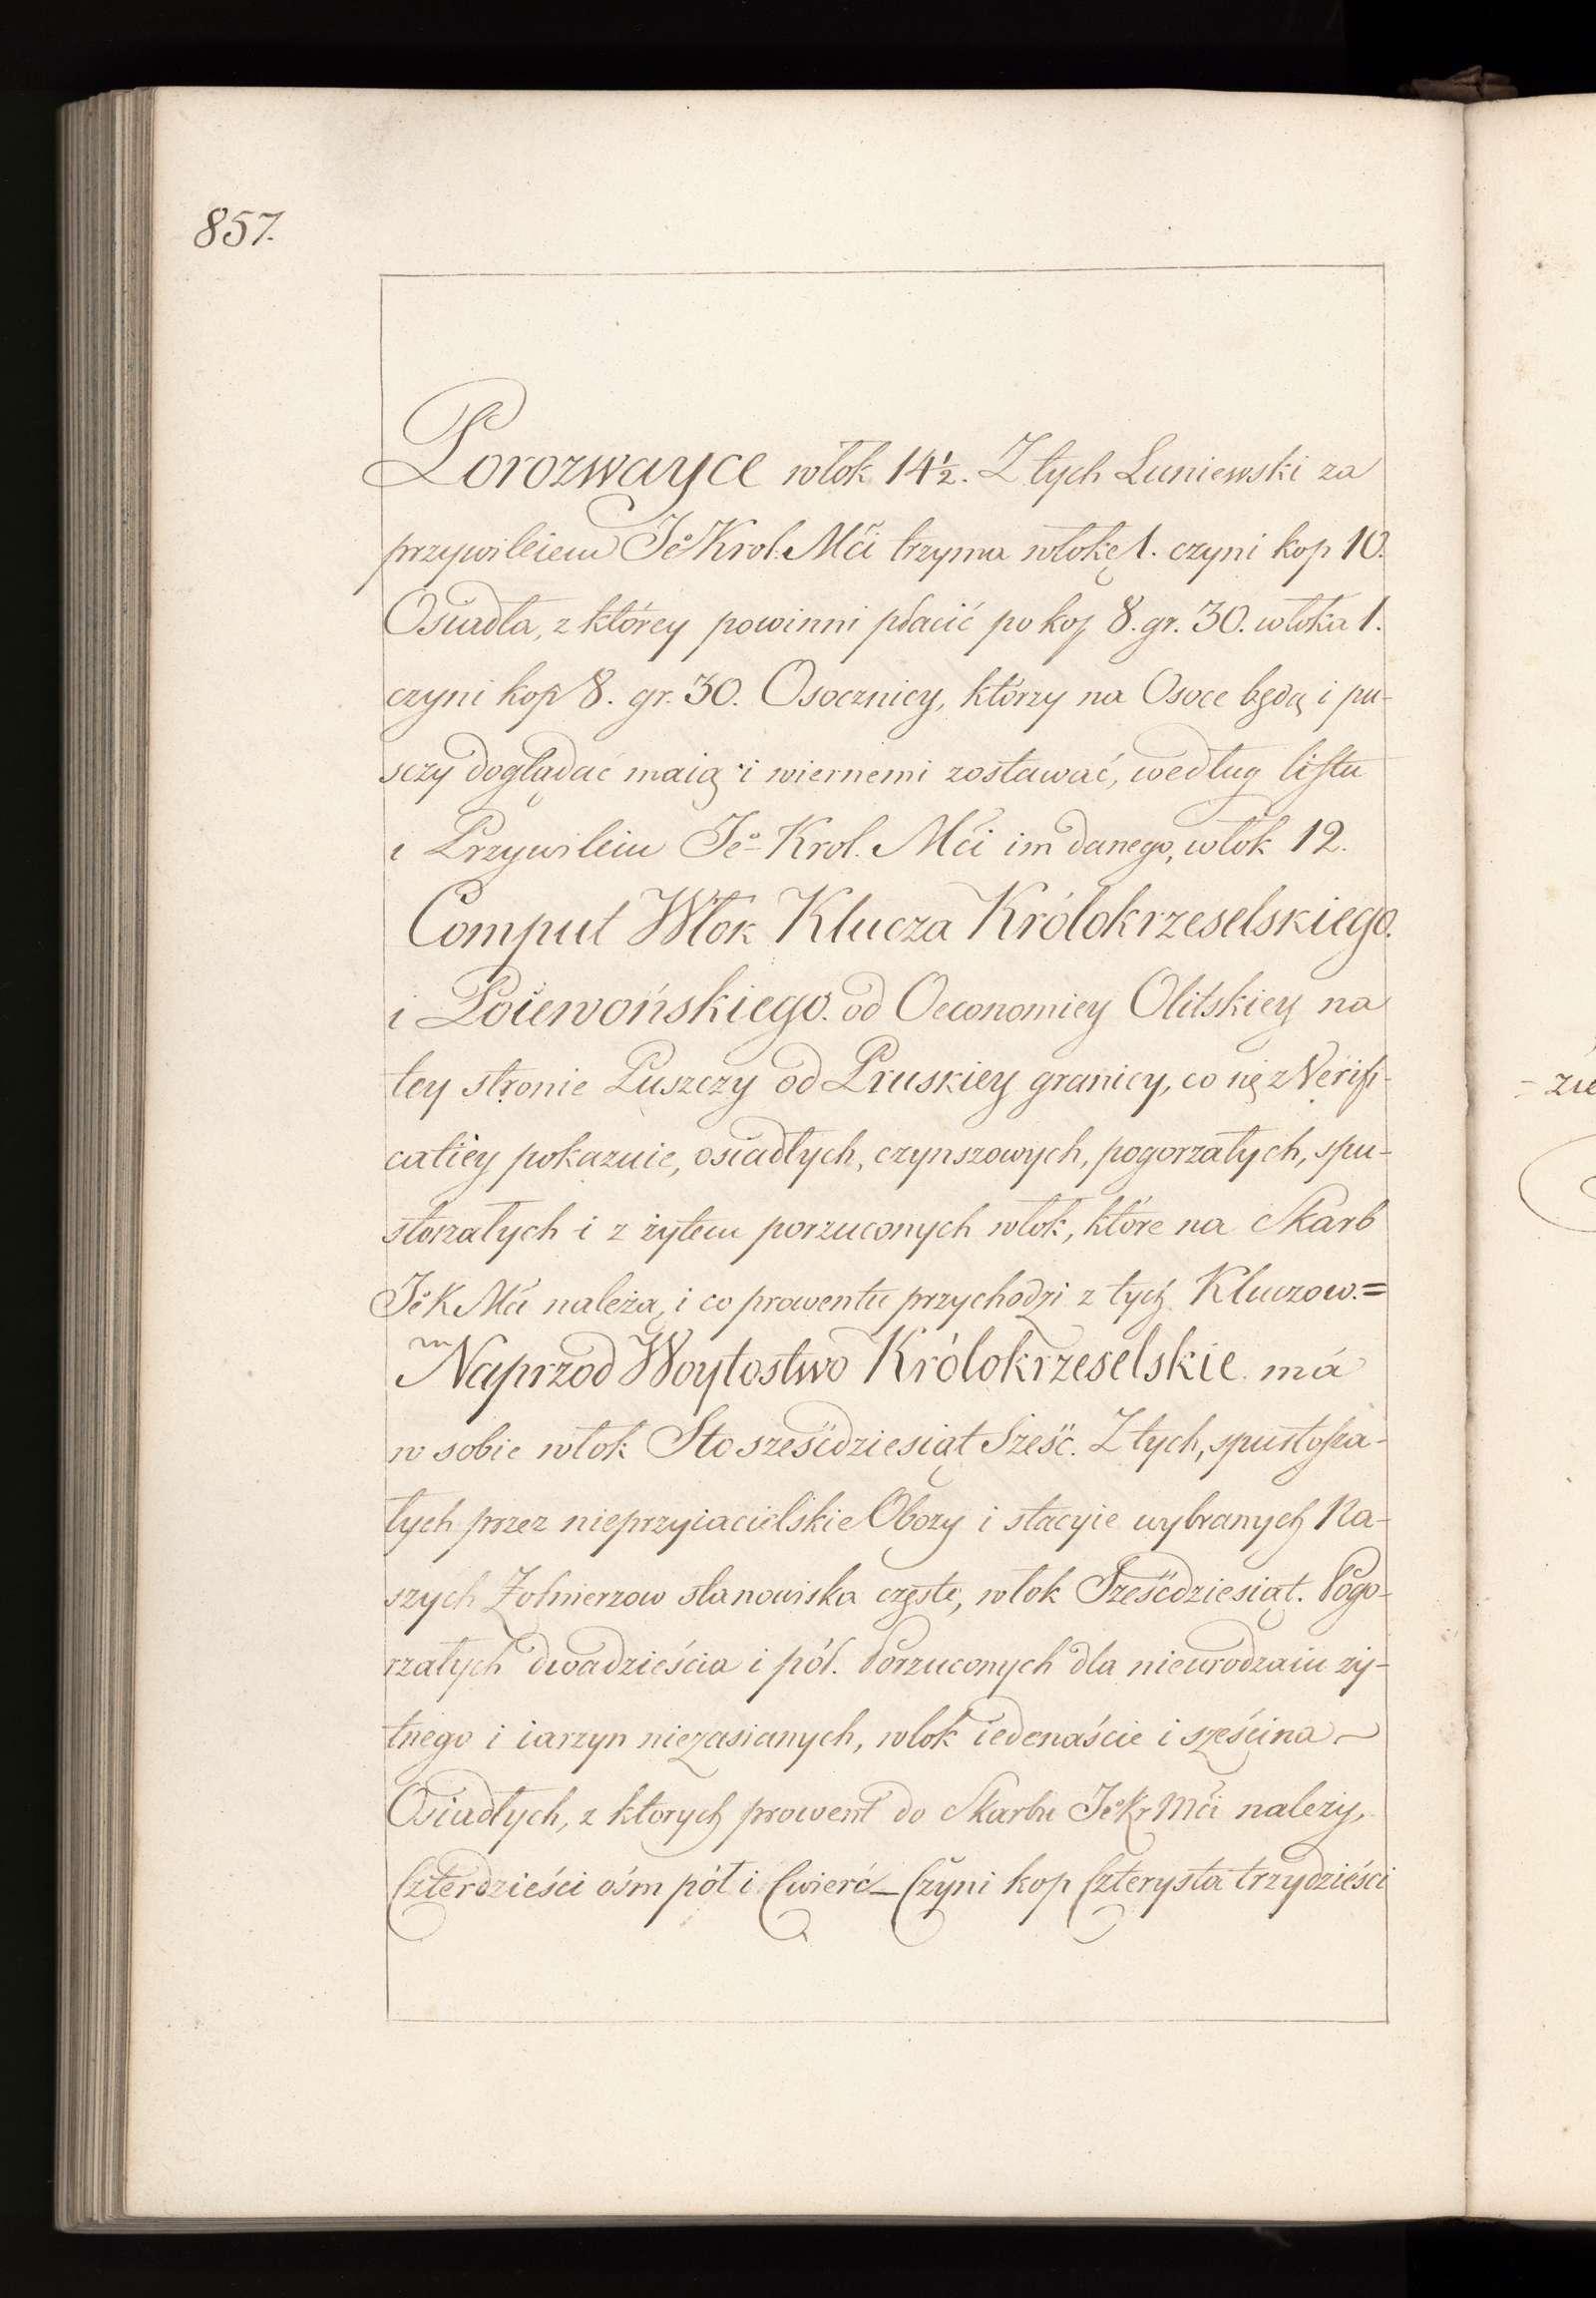 857.
Porozwayce włok 14½. Z tych Luniewski za
przywileiem Jeo Krol. Mći trzyma włokę 1. czyni kop 10.
Osiadła, z którey powinni płacić po kop 8. gr. 30. włoka 1.
czyni kop 8. gr. 30. Osocznicy, którzy na Osoce będą i pu-
sczy doglądać maią i wiernemi zostawać, według listu
i Przywileiu Jeo Krol. Mći im danego, włok 12.
Comput Włok Klucza Królokrzeselskiego.
i Poiewońskiego. od Oeconomiey Olitskiey na
tey stronie Puszczy od Pruskiey granicy, co się z Verifi-
catiey pokazuie, osiadłych, czynszowych, pogorzałych, spu-
stoszałych i z żytem porzuconych włok, które na Skarb
Jeo K Mći należą, i co prowentu przychodzi z tych Kluczow.=
Naprzod Woytostwo Królokrzeselskie má
w sobie włok Sto sześćdziesiąt Sześć. Z tych, spustosza-
łych przez nieprzyiacielskie Obozy i stacyie wybranych Na-
szych Żołnierzow stanowiska częste, włok Sześćdziesiąt. Pogo-
rzałych dwadzieścia i pół. Porzuconych dla nieurodzaiu ży-
tnego i iarzyn niezasianych, włok iedenaście i sześcina
Osiadłych, z ktorych prowent do Skarbu Jeo Kr Mći należy,
Czterdzieści ośm pół i Cwierć_ Czyni kop Czterysta trzydzieści
zie